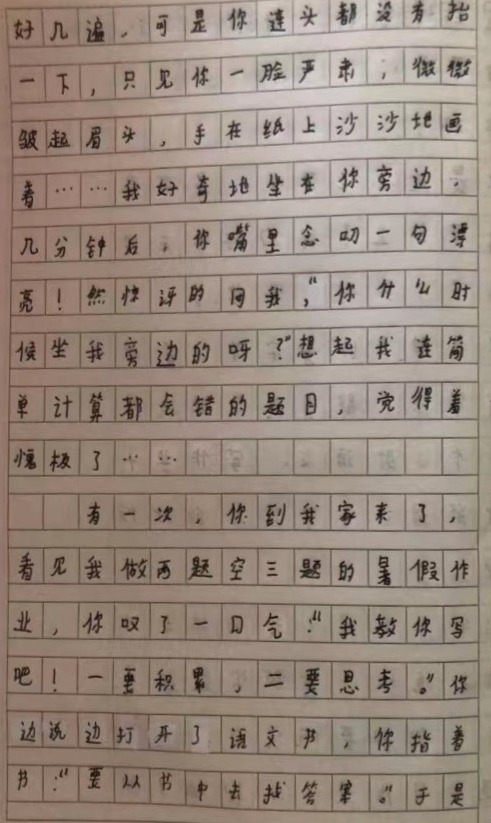 好几遍，可是你连头都没有抬
一下，只见你一脸严肃，微微
皱起眉头，手在纸上沙沙地画
着……我好奇地坐在你旁边，
几分钟后，你嘴里念叨一句漂
亮！然后讶的问我，“你什么时
候坐我旁边的呀？”想起我连简
单计算都会错的题目，觉得羞
愧极了……
有一次，你到我家来了，
看见我做两题空三题的暑假作
业，你叹了一口气：“我教你写
吧！一要积累，二要思考。”你
边说边打开了语文书，你指着
书：“要从书中去找答案。”于是